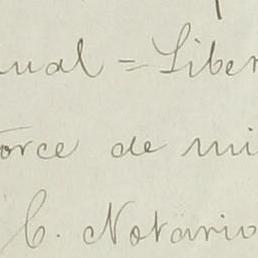 ual = Liber
orce de mi
C. Notario